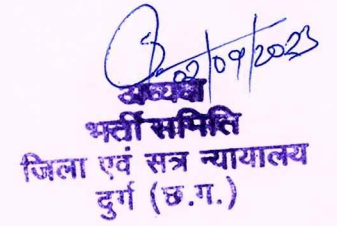 02/09/2023
अध्यक्ष
भर्ती समिति
जिला एवं सत्र न्यायालय
दुर्ग (छ.ग.)